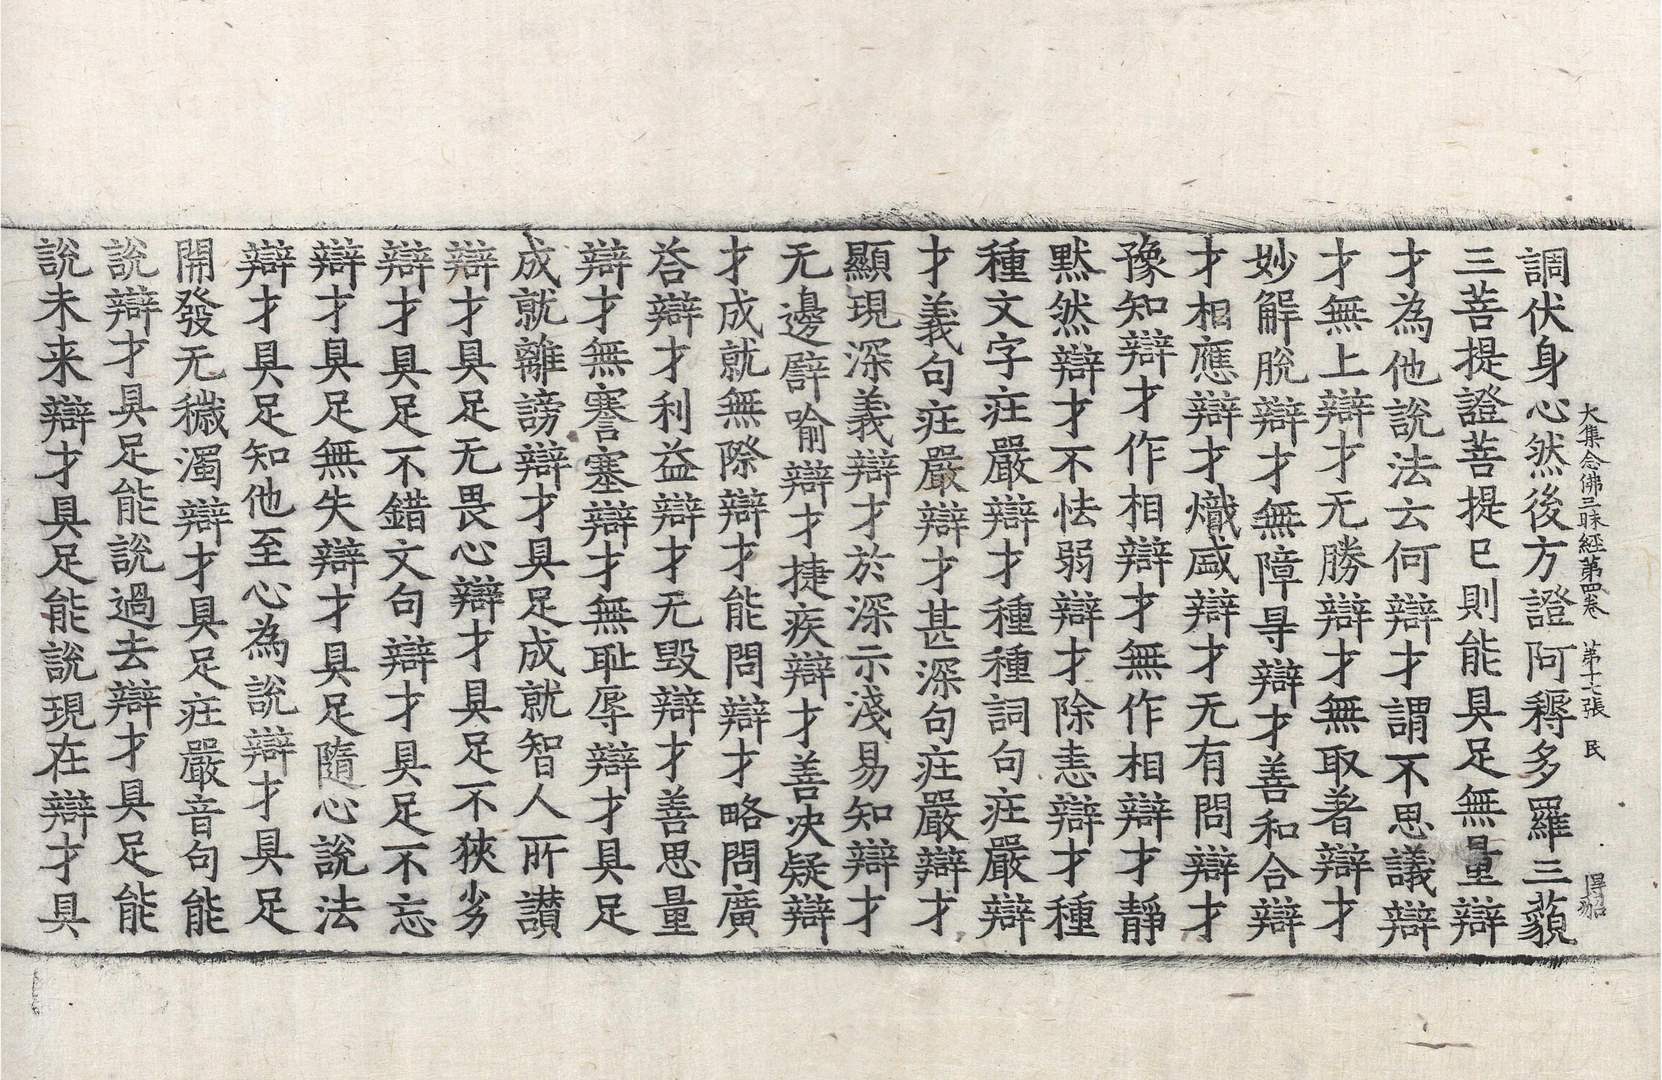 大集念佛三昧經第四卷 第十七張 民
調伏身心然後方證阿耨多羅三藐
三菩提證菩提已則能具足無量辯
才為他說法云何辯才謂不思議辯
才無上辯才无勝辯才無取著辯才
妙解脫辯才無障㝵辯才善和合辯
才相應辯才熾盛辯才无有問辯才
豫知辯才作相辯才無作相辯才靜
默然辯才不怯弱辯才除恚辯才種
種文字莊嚴辯才種種詞句莊嚴辯
才義句莊嚴辯才甚深句莊嚴辯才
顯現深義辯才於深示淺易知辯才
无邊譬喻辯才捷疾辯才善決疑辯
才成就無際辯才能問辯才略問廣
荅辯才利益辯才无毀辯才善思量
辯才無謇塞辯才無恥辱辯才具足
成就離謗辯才具足成就智人所讃
辯才具足无畏心辯才具足不狹劣
辯才具足不錯文句辯才具足不忘
辯才具足無失辯才具足隨心說法
辯才具足知他至心為說辯才具足
開發无穢濁辯才具足莊嚴音句能
說辯才具足能說過去辯才具足能
說未来辯才具足能說現在辯才具